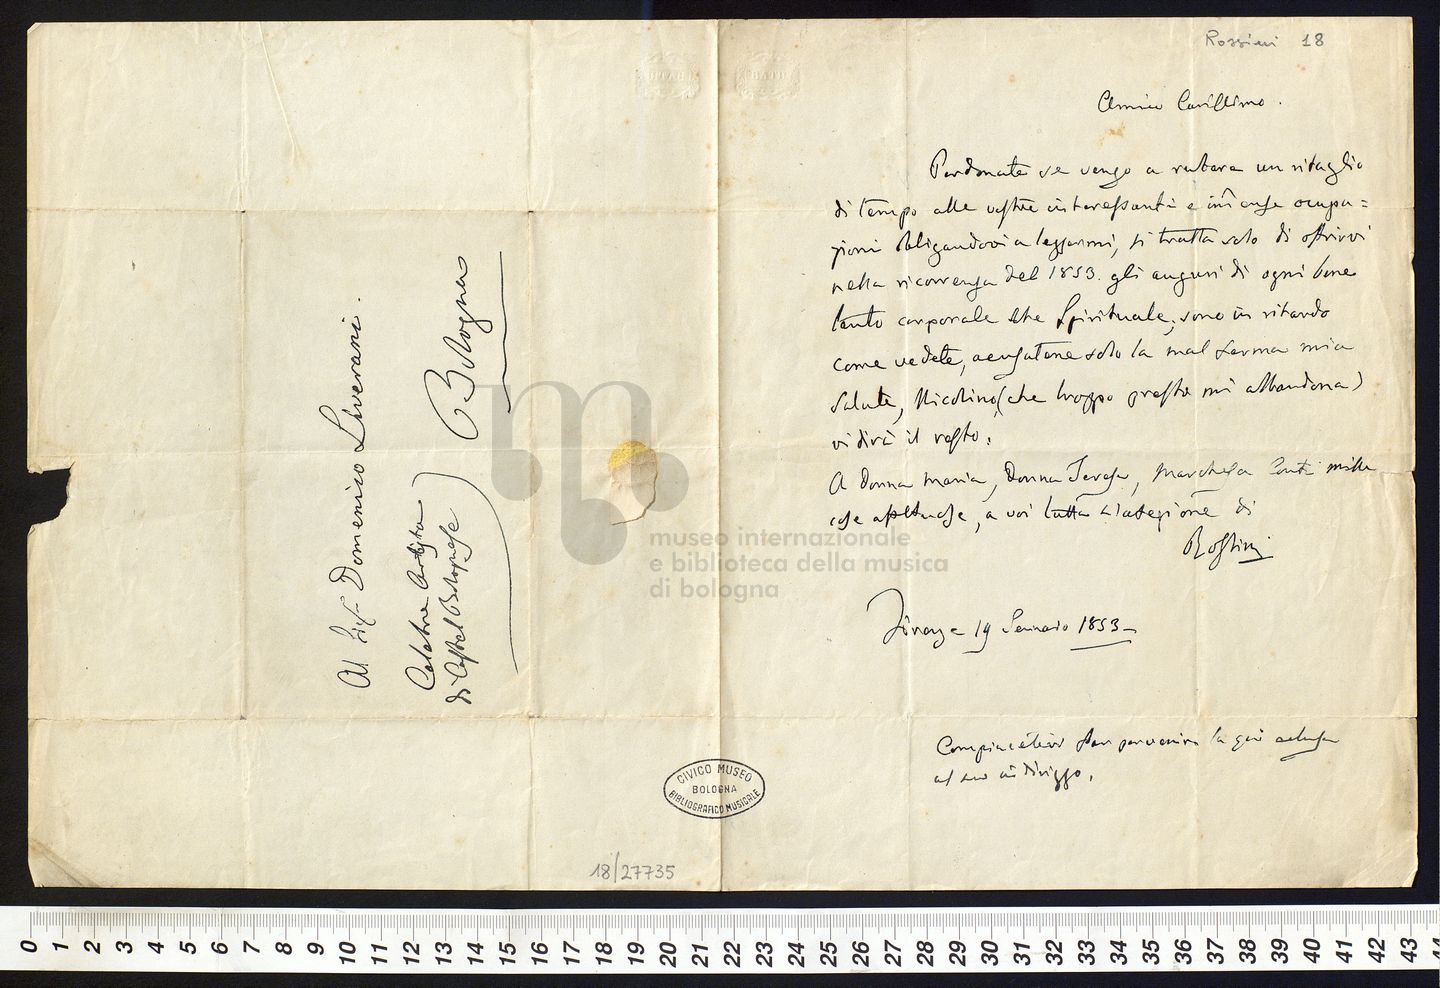 Rossini 18
Amico Carissimo.
Perdonate se vengo a rubare un ritaglio
di tempo alle vostre interessanti e occupa=
zioni obligandovi a leggermi, si tratta solo di offrirvi
nella ricorrenza del 1853. gli auguri di ogni bene
tanto corporale che Spirituale, sono in ritardo
come vedete, accusatene solo la mal ferma mia
Salute, Nicolino (che troppo presto mi abbandona)
vi dirà il resto.
A Donna Maria, Donna Teresa, Marchesa Conti mille
cose affettuose, a voi tutta l'affezione di
Rossini
Firenze 19 Gennaio 1853
Compiacetevi far pervenire la qui acclusa
al suo indirizzo.
Al Sig.r Domenico Liverani.
Celebre Artista
di Castel Bolognese
Bologna
BATH
BATH
museo internazionale
e biblioteca della musica
di bologna
CIVICO MUSEO
BOLOGNA
BIBLIOGRAFICO MUSICALE
18/27735
0 1 2 3 4 5 6 7 8 9 10 11 12 13 14 15 16 17 18 19 20 21 22 23 24 25 26 27 28 29 30 31 32 33 34 35 36 37 38 39 40 41 42 43 44